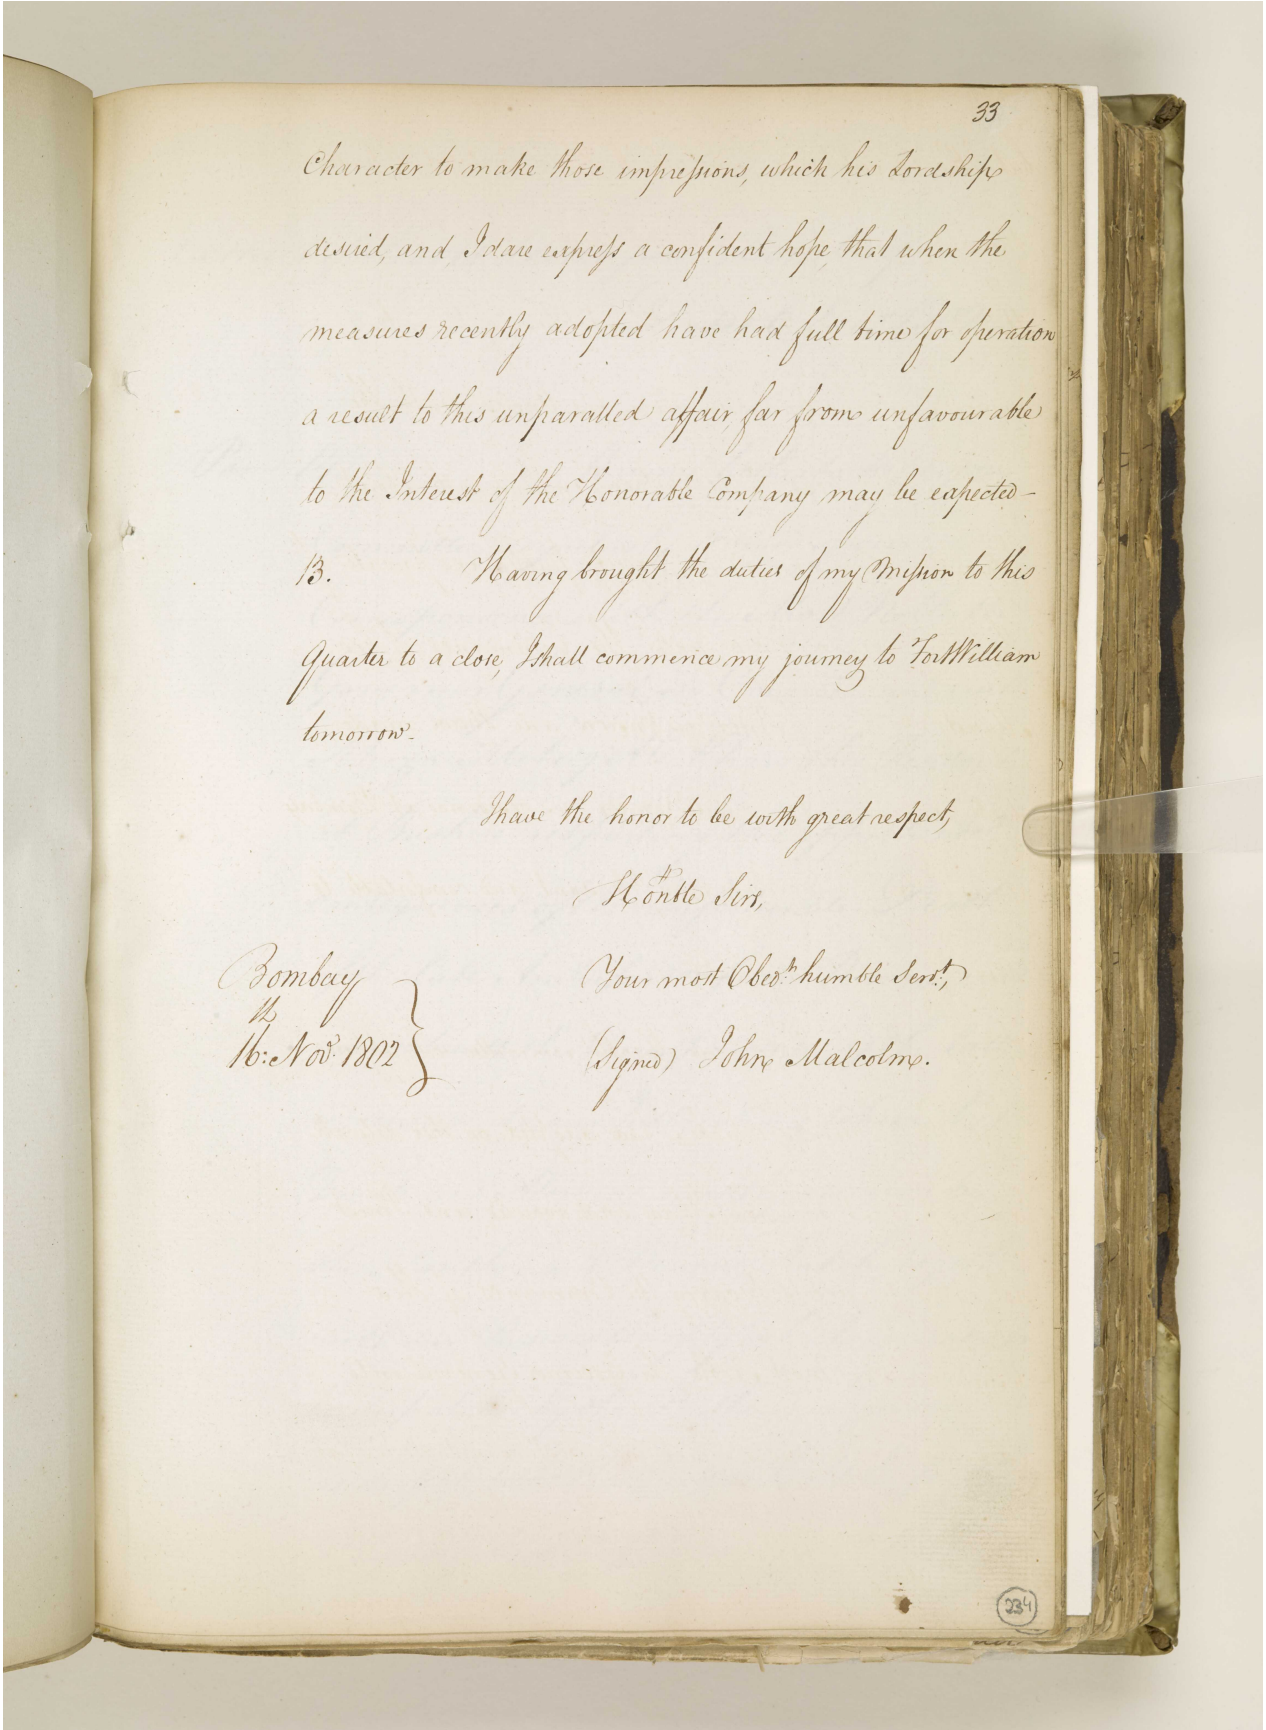 33
Character to make those impreſsions, which his Lordship
desired, and I dare expreſs a confident hope, that when the
measures recently adopted have had full time for operation
a result to this unparalled affair, far from unfavourable
to the Interest of the Honorable Company may be expected -
13. Having brought the duties of my Miſsion to this
Quarter to a close, I shall commence my journey to Fort William
tomorrow -
I have the honor to be with great respect,
Honble Sirs,
Bombay
Your most Obedt. humble Servt,
16: Nov. 1802
(Signed) John Malcolm.
234